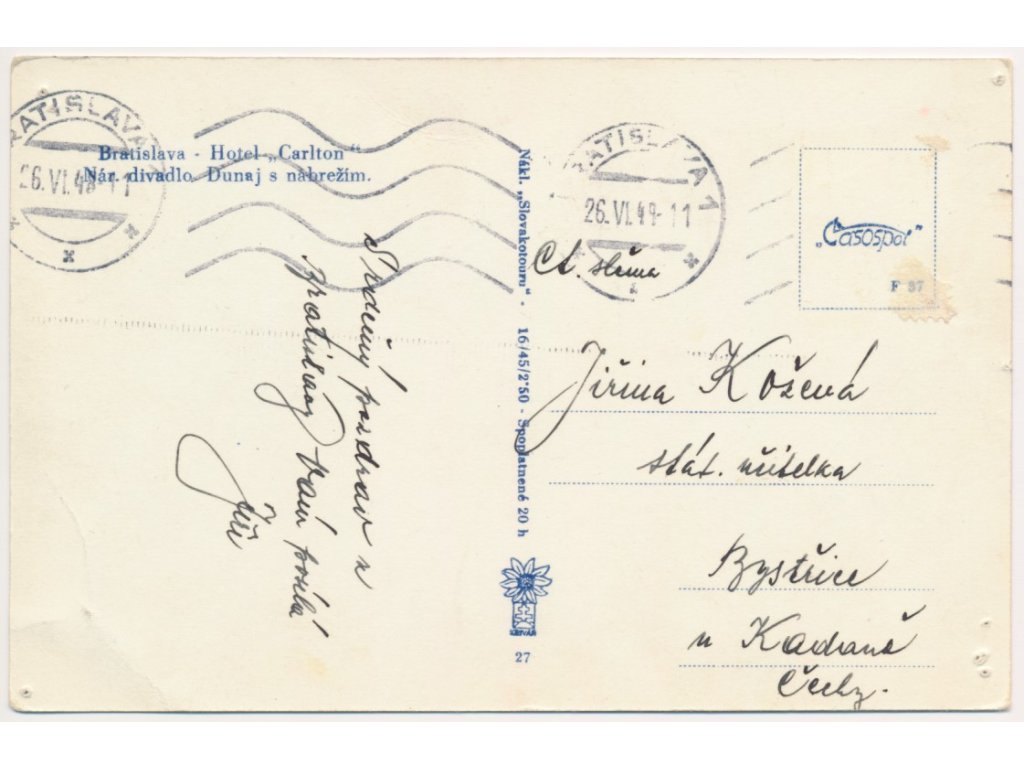 BRATISLAVA
26.VI.49-11
Bratislava - Hotel „Carlton“
Nár. divadlo. Dunaj s nábrežím.
Srdečný pozdrav z
Bratislavy Vám posílá
Jiří
Nákl. „Slovakotouru“ · 16/45/2·50 - Spoplatnené 20 h
KRIVÁŇ
27
BRATISLAVA 1
26.VI.49-11
„Časospol“
F 37
Ct. slečna
Jiřina Koževá
stát. učitelka
Bystřice
u Kadaně
Čechy.